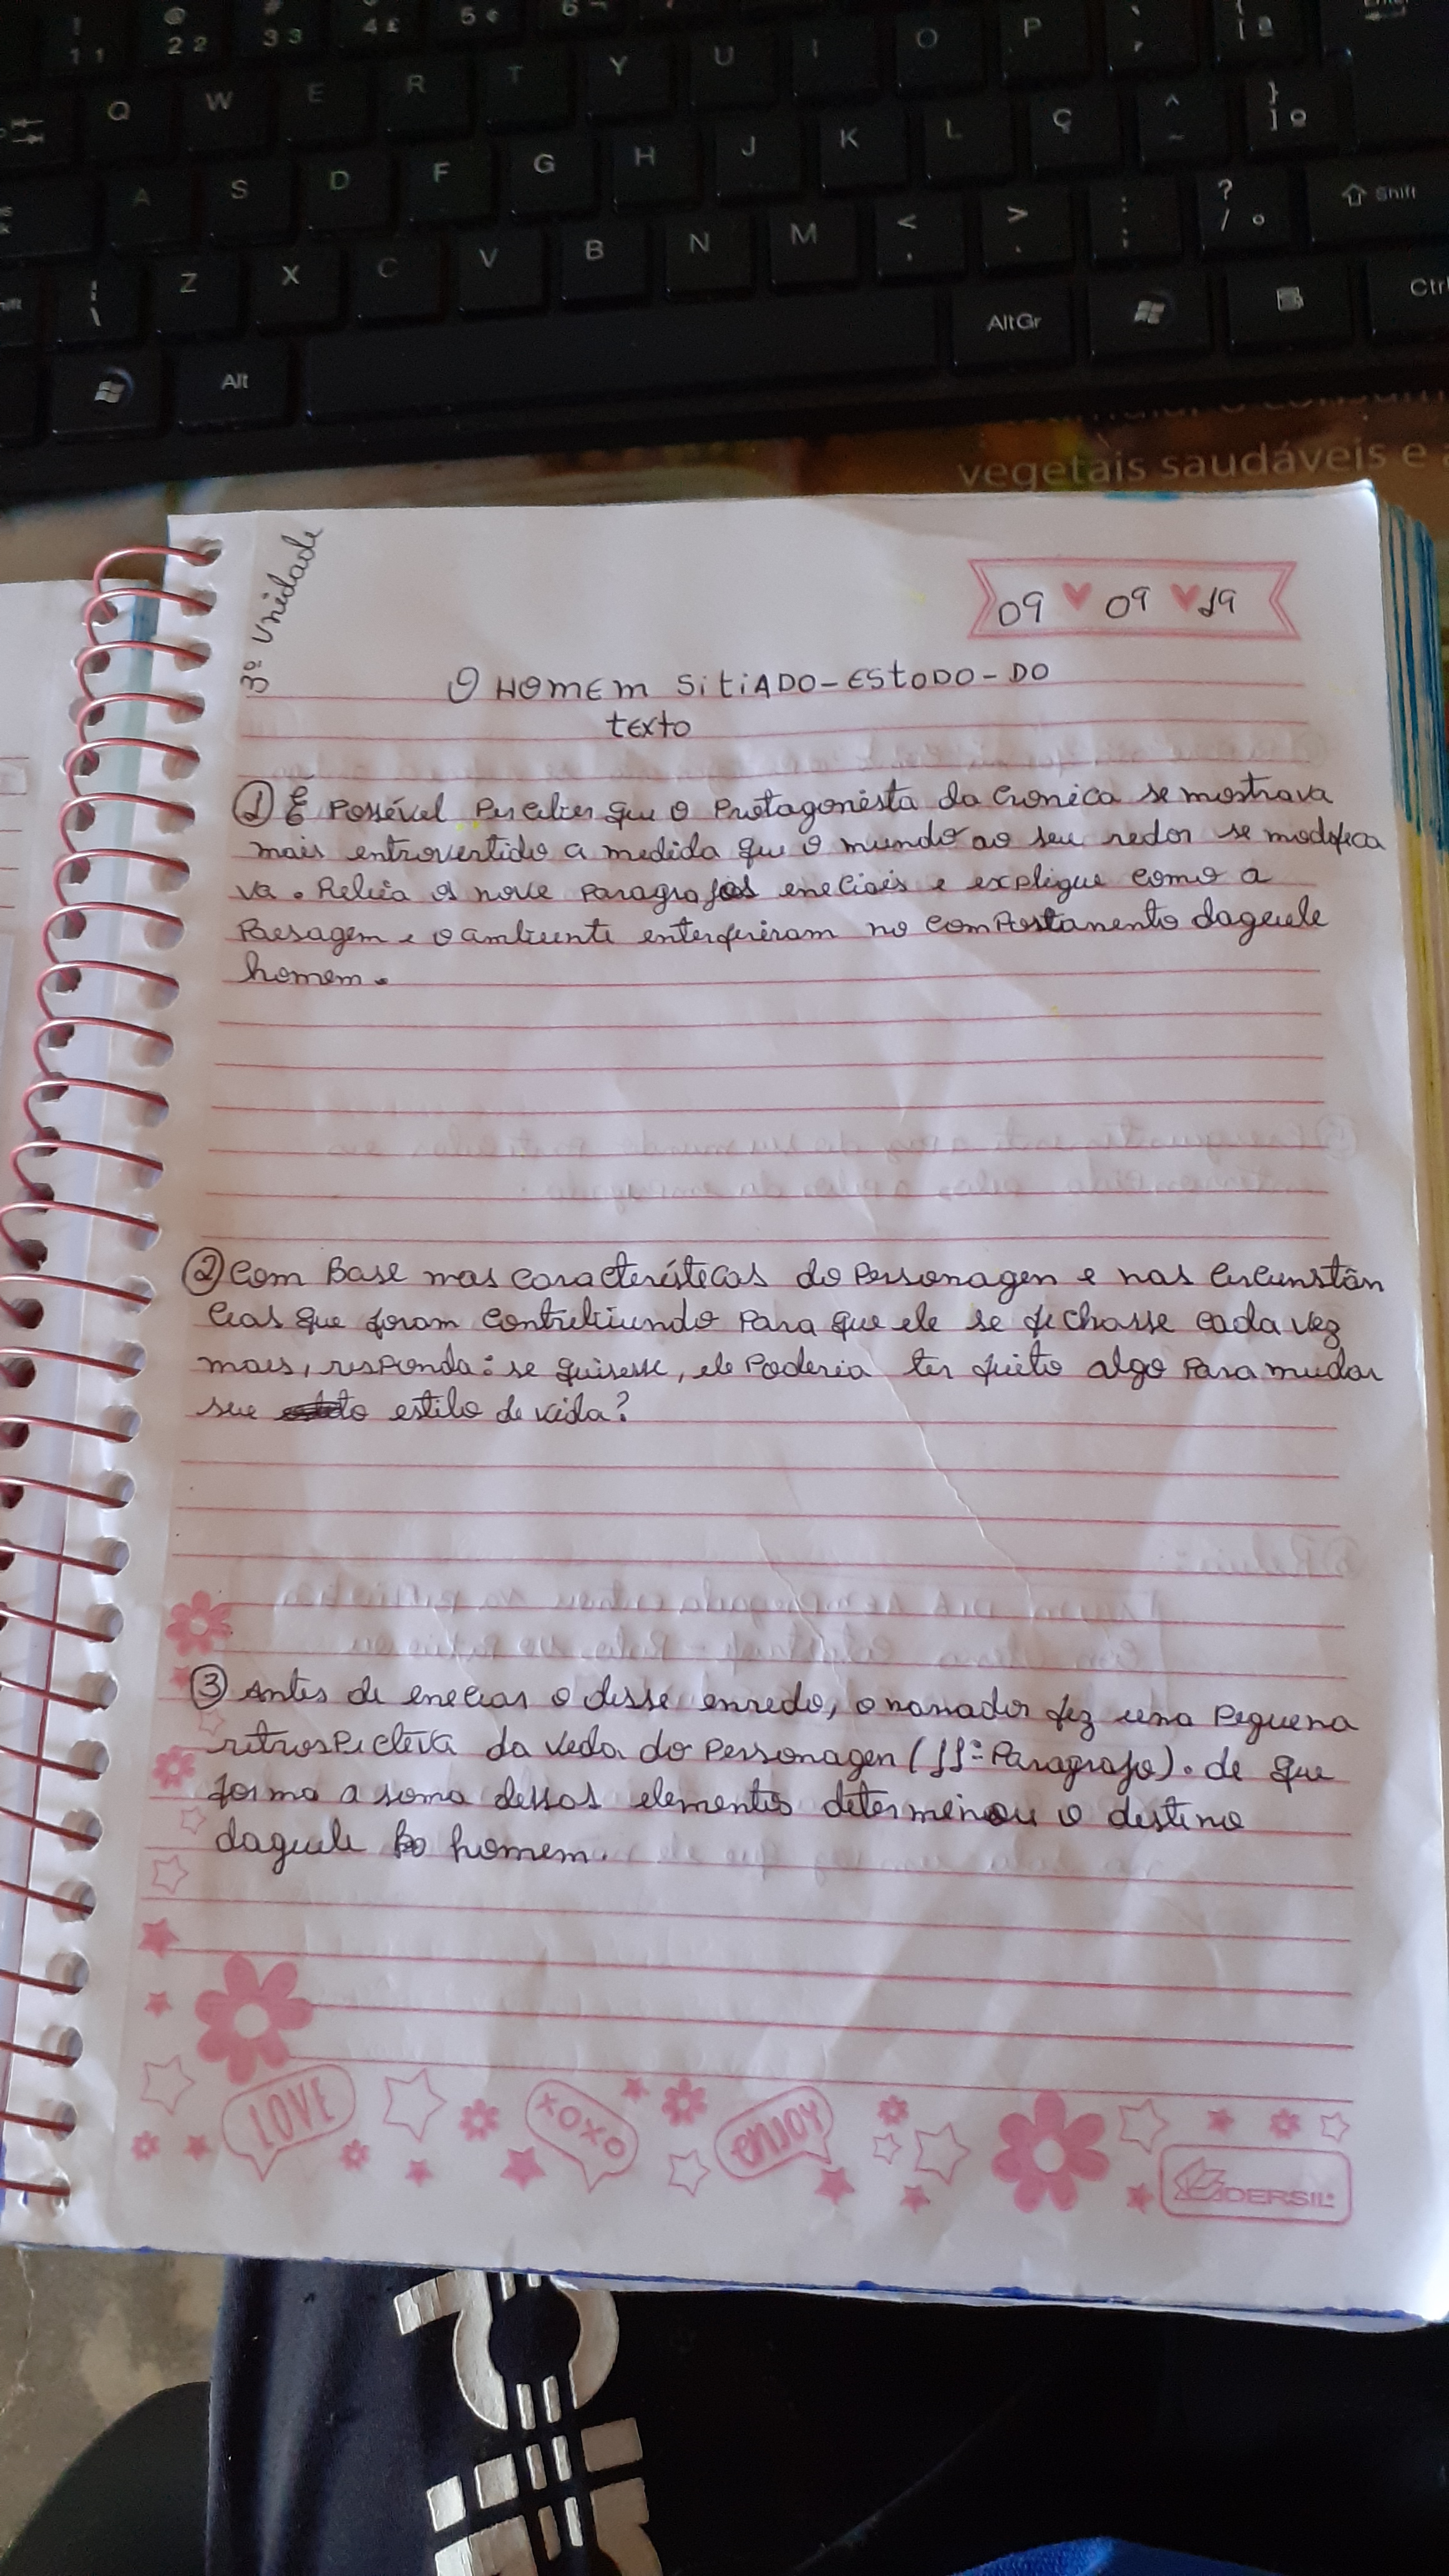 ! 1 1
@ 2 2
# 3 3
4 £
5 ¢
6 ¬
Q W E R T Y U I O P
A S D F G H J K L Ç ^ ~ } ] º
| \ Z X C V B N M < , > . : ; ? / ° Shift
Alt AltGr Ctrl
vegetais saudáveis e
3º Unidade
09 09 19
O HOMEM SitiADO-EStoDO-DO
texto
① É Possível Perceber que o Protagonista da Cronica se mostrava
mais entrovertido a medida que o mundo ao seu redor se modifica
va. Releia os nove Paragrafos eneciais e explique como a
Paesagem e o ambiente enterferiram no comPortamento daquele
homem.
② Com Base mas caracterésticas do Personagen e nas Circunstân
cias que foram Contribuindo Para que ele se fechasse cada vez
mais, responda: se quisesse, ele Poderia ter feito algo Para mudar
seu estilo de vida?
③ Antes de eneciar o desse enredo, o narrador fez uma Pequena
retrosPectiva da vida do Personagen (11º Paragrafo). de que
forma a soma dessas elementos determinou o destino
daquele homem.
LOVE
XOXO
enjoy
DERSIL